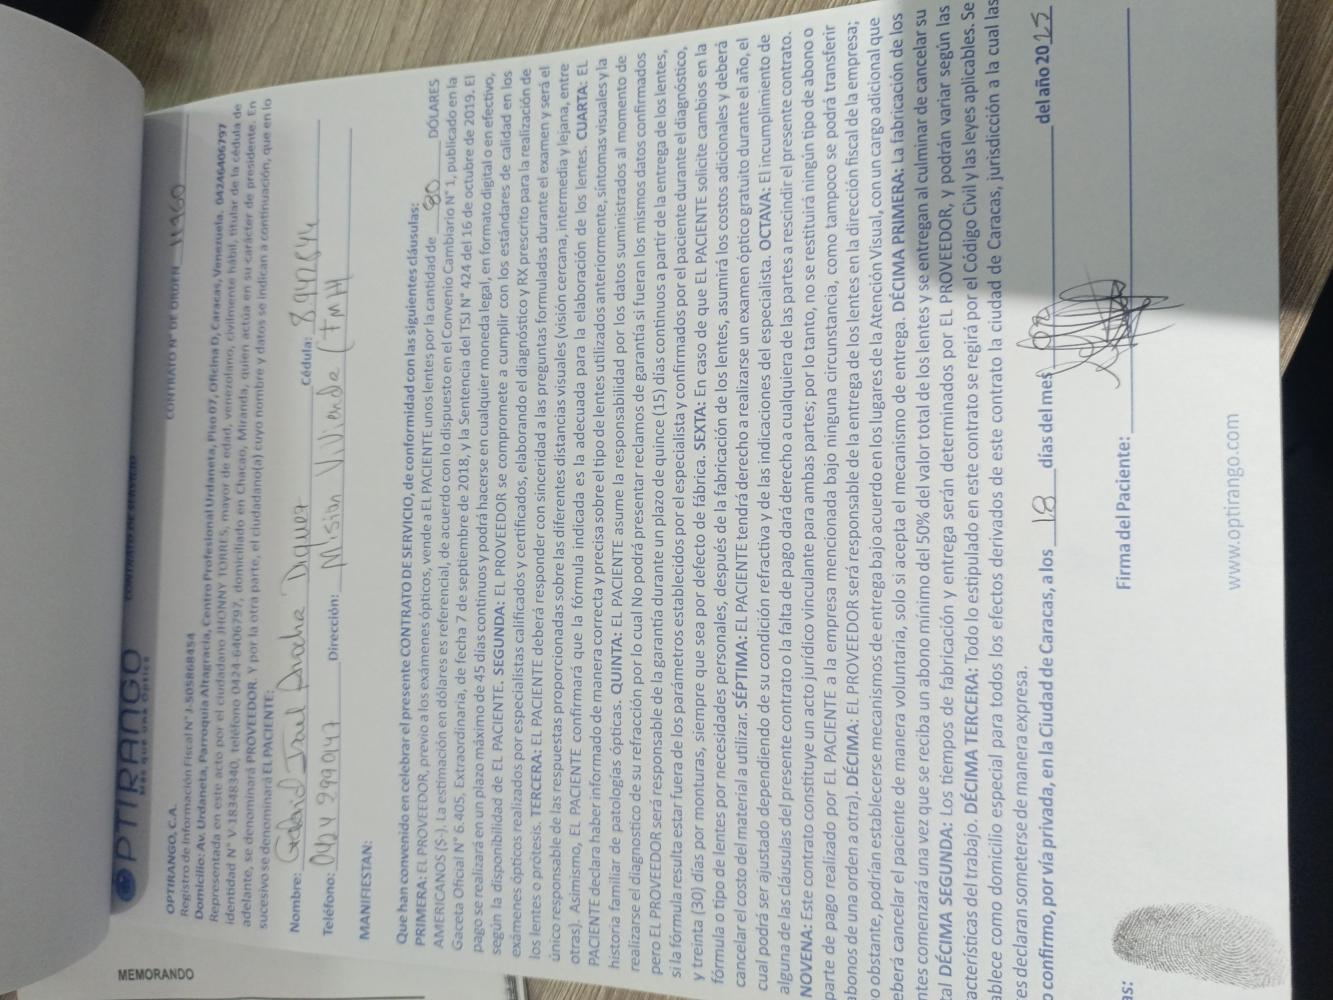 OPTIRANGO CONTRATO DE SERVICIO
MÁS QUE UNA ÓPTICA
OPTIRANGO, C.A. CONTRATO N° DE ORDEN 11460
Registro de Información Fiscal N° J-505868454
Domicilio: Av. Urdaneta, Parroquia Altagracia, Centro Profesional Urdaneta, Piso 07, Oficina D, Caracas, Venezuela. 04246406797
Representada en este acto por el ciudadano JHONNY TORRES, mayor de edad, venezolano, civilmente hábil, titular de la cédula de
identidad N° V-18348340, teléfono 0424-6406797, domiciliado en Chacao, Miranda, quien actúa en su carácter de presidente. En
adelante, se denominará PROVEEDOR. Y por la otra parte, el ciudadano(a) cuyo nombre y datos se indican a continuación, que en lo
sucesivo se denominará EL PACIENTE:
Nombre: Gabriel Cédula:
Teléfono: 0424 2990147 Dirección: Misión Vivienda
MANIFIESTAN:
Que han convenido en celebrar el presente CONTRATO DE SERVICIO, de conformidad con las siguientes cláusulas:
PRIMERA: EL PROVEEDOR, previo a los exámenes ópticos, vende a EL PACIENTE unos lentes por la cantidad de 80 DÓLARES
AMERICANOS ($-). La estimación en dólares es referencial, de acuerdo con lo dispuesto en el Convenio Cambiario N° 1, publicado en la
Gaceta Oficial N° 6.405, Extraordinaria, de fecha 7 de septiembre de 2018, y la Sentencia del TSJ N° 424 del 16 de octubre de 2019. El
pago se realizará en un plazo máximo de 45 días continuos y podrá hacerse en cualquier moneda legal, en formato digital o en efectivo,
según la disponibilidad de EL PACIENTE. SEGUNDA: EL PROVEEDOR se compromete a cumplir con los estándares de calidad en los
exámenes ópticos realizados por especialistas calificados y certificados, elaborando el diagnóstico y RX prescrito para la realización de
los lentes o prótesis. TERCERA: EL PACIENTE deberá responder con sinceridad a las preguntas formuladas durante el examen y será el
único responsable de las respuestas proporcionadas sobre las diferentes distancias visuales (visión cercana, intermedia y lejana, entre
otras). Asimismo, EL PACIENTE confirmará que la fórmula indicada es la adecuada para la elaboración de los lentes. CUARTA: EL
PACIENTE declara haber informado de manera correcta y precisa sobre el tipo de lentes utilizados anteriormente, síntomas visuales y la
historia familiar de patologías ópticas. QUINTA: EL PACIENTE asume la responsabilidad por los datos suministrados al momento de
realizarse el diagnostico de su refracción por lo cual No podrá presentar reclamos de garantía si fueran los mismos datos confirmados
pero EL PROVEEDOR será responsable de la garantía durante un plazo de quince (15) días continuos a partir de la entrega de los lentes,
si la fórmula resulta estar fuera de los parámetros establecidos por el especialista y confirmados por el paciente durante el diagnóstico,
y treinta (30) días por monturas, siempre que sea por defecto de fábrica. SEXTA: En caso de que EL PACIENTE solicite cambios en la
fórmula o tipo de lentes por necesidades personales, después de la fabricación de los lentes, asumirá los costos adicionales y deberá
cancelar el costo del material a utilizar. SÉPTIMA: EL PACIENTE tendrá derecho a realizarse un examen óptico gratuito durante el año, el
cual podrá ser ajustado dependiendo de su condición refractiva y de las indicaciones del especialista. OCTAVA: El incumplimiento de
alguna de las cláusulas del presente contrato o la falta de pago dará derecho a cualquiera de las partes a rescindir el presente contrato.
NOVENA: Este contrato constituye un acto jurídico vinculante para ambas partes; por lo tanto, no se restituirá ningún tipo de abono o
parte de pago realizado por EL PACIENTE a la empresa mencionada bajo ninguna circunstancia, como tampoco se podrá transferir
abonos de una orden a otra). DÉCIMA: EL PROVEEDOR será responsable de la entrega de los lentes en la dirección fiscal de la empresa;
o obstante, podrían establecerse mecanismos de entrega bajo acuerdo en los lugares de la Atención Visual, con un cargo adicional que
eberá cancelar el paciente de manera voluntaria, solo si acepta el mecanismo de entrega. DÉCIMA PRIMERA: La fabricación de los
ntes comenzará una vez que se reciba un abono mínimo del 50% del valor total de los lentes y se entregan al culminar de cancelar su
tal DÉCIMA SEGUNDA: Los tiempos de fabricación y entrega serán determinados por EL PROVEEDOR, y podrán variar según las
acterísticas del trabajo. DÉCIMA TERCERA: Todo lo estipulado en este contrato se regirá por el Código Civil y las leyes aplicables. Se
ablece como domicilio especial para todos los efectos derivados de este contrato la ciudad de Caracas, jurisdicción a la cual las
es declaran someterse de manera expresa.
o confirmo, por vía privada, en la Ciudad de Caracas, a los 18 días del mes del año 2025
as: Firma del Paciente:
www.optirango.com
MEMORANDO